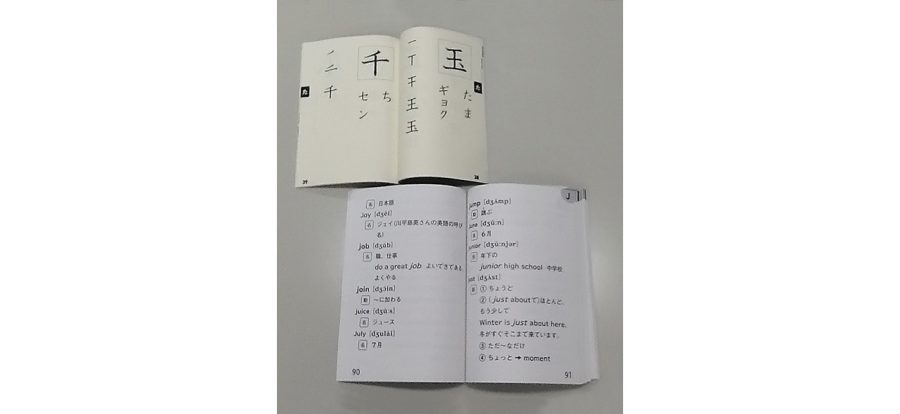 玉
た
たま
ギョク
一
丁
干
王
玉
38
千
ち
セン
ノ
二
千
た
39
名 日本語
Jay [dʒéi]
名 ジェイ(川平慈英さんの英語の呼び
名)
job [dʒɑ́b]
名 職、仕事
do a great job よいできである、
よくやる
join [dʒɔ́in]
動 〜に加わる
juice [dʒúːs]
名 ジュース
July [dʒulái]
名 7月
90
J
jump [dʒʌ́mp]
動 跳ぶ
June [dʒúːn]
名 6月
junior [dʒúːnjər]
形 年下の
junior high school 中学校
just [dʒʌ́st]
副 ① ちょうど
② ( just aboutで)ほとんど、
もう少しで
Winter is just about here.
冬がすぐそこまで来ています。
③ ただ〜なだけ
④ ちょっと ➔ moment
91